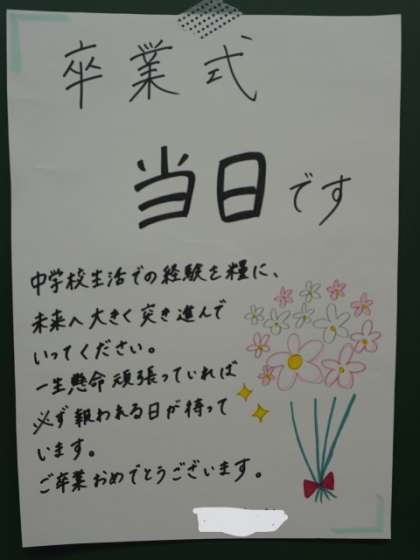 卒業式
当日です
中学校生活での経験を糧に、
未来へ大きく突き進んで
いってください。
一生懸命頑張っていれば
必ず報われる日が待って
います。
ご卒業おめでとうございます。